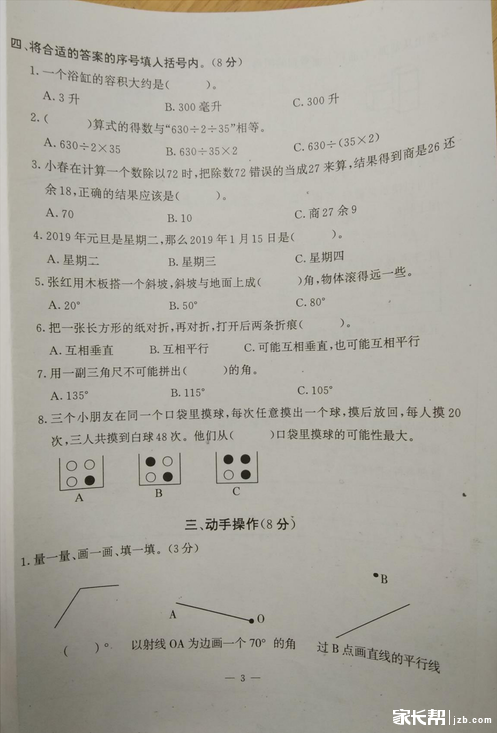 四、将合适的答案的序号填入括号内。(8分)
1.一个浴缸的容积大约是(　　)。
A.3升　　B.300毫升　　C.300升
2.(　　)算式的得数与“630÷2÷35”相等。
A.630÷2×35　　B.630÷35×2　　C.630÷(35×2)
3.小春在计算一个数除以72时,把除数72错误的当成27来算,结果得到商是26还
余18,正确的结果应该是(　　)。
A.70　　B.10　　C.商27余9
4.2019年元旦是星期二,那么2019年1月15日是(　　)。
A.星期二　　B.星期三　　C.星期四
5.张红用木板搭一个斜坡,斜坡与地面上成(　　)角,物体滚得远一些。
A.20°　　B.50°　　C.80°
6.把一张长方形的纸对折,再对折,打开后两条折痕(　　)。
A.互相垂直　　B.互相平行　　C.可能互相垂直,也可能互相平行
7.用一副三角尺不可能拼出(　　)的角。
A.135°　　B.115°　　C.105°
8.三个小朋友在同一个口袋里摸球,每次任意摸出一个球,摸后放回,每人摸20
次,三人共摸到白球48次。他们从(　　)口袋里摸球的可能性最大。
A　　B　　C
三、动手操作(8分)
1.量一量、画一画、填一填。(3分)
B
A　　O
(　　)°　　以射线OA为边画一个70°的角　　过B点画直线的平行线
— 3 —
家长帮 jzb.com